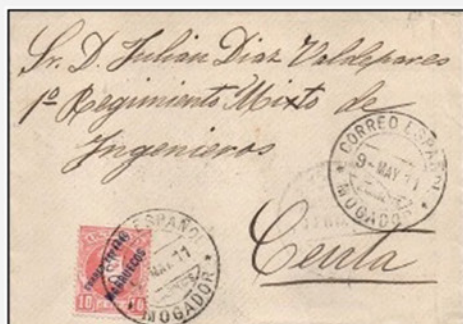 Sr. D. Julian Diaz Valdepares
1º Regimiento Mixto de
Ingenieros
CORREO ESPAÑOL
9-MAY.11
MOGADOR
Ceuta
ESPAÑOL
MAY.11
MOGADOR
MARRUECOS
10 10